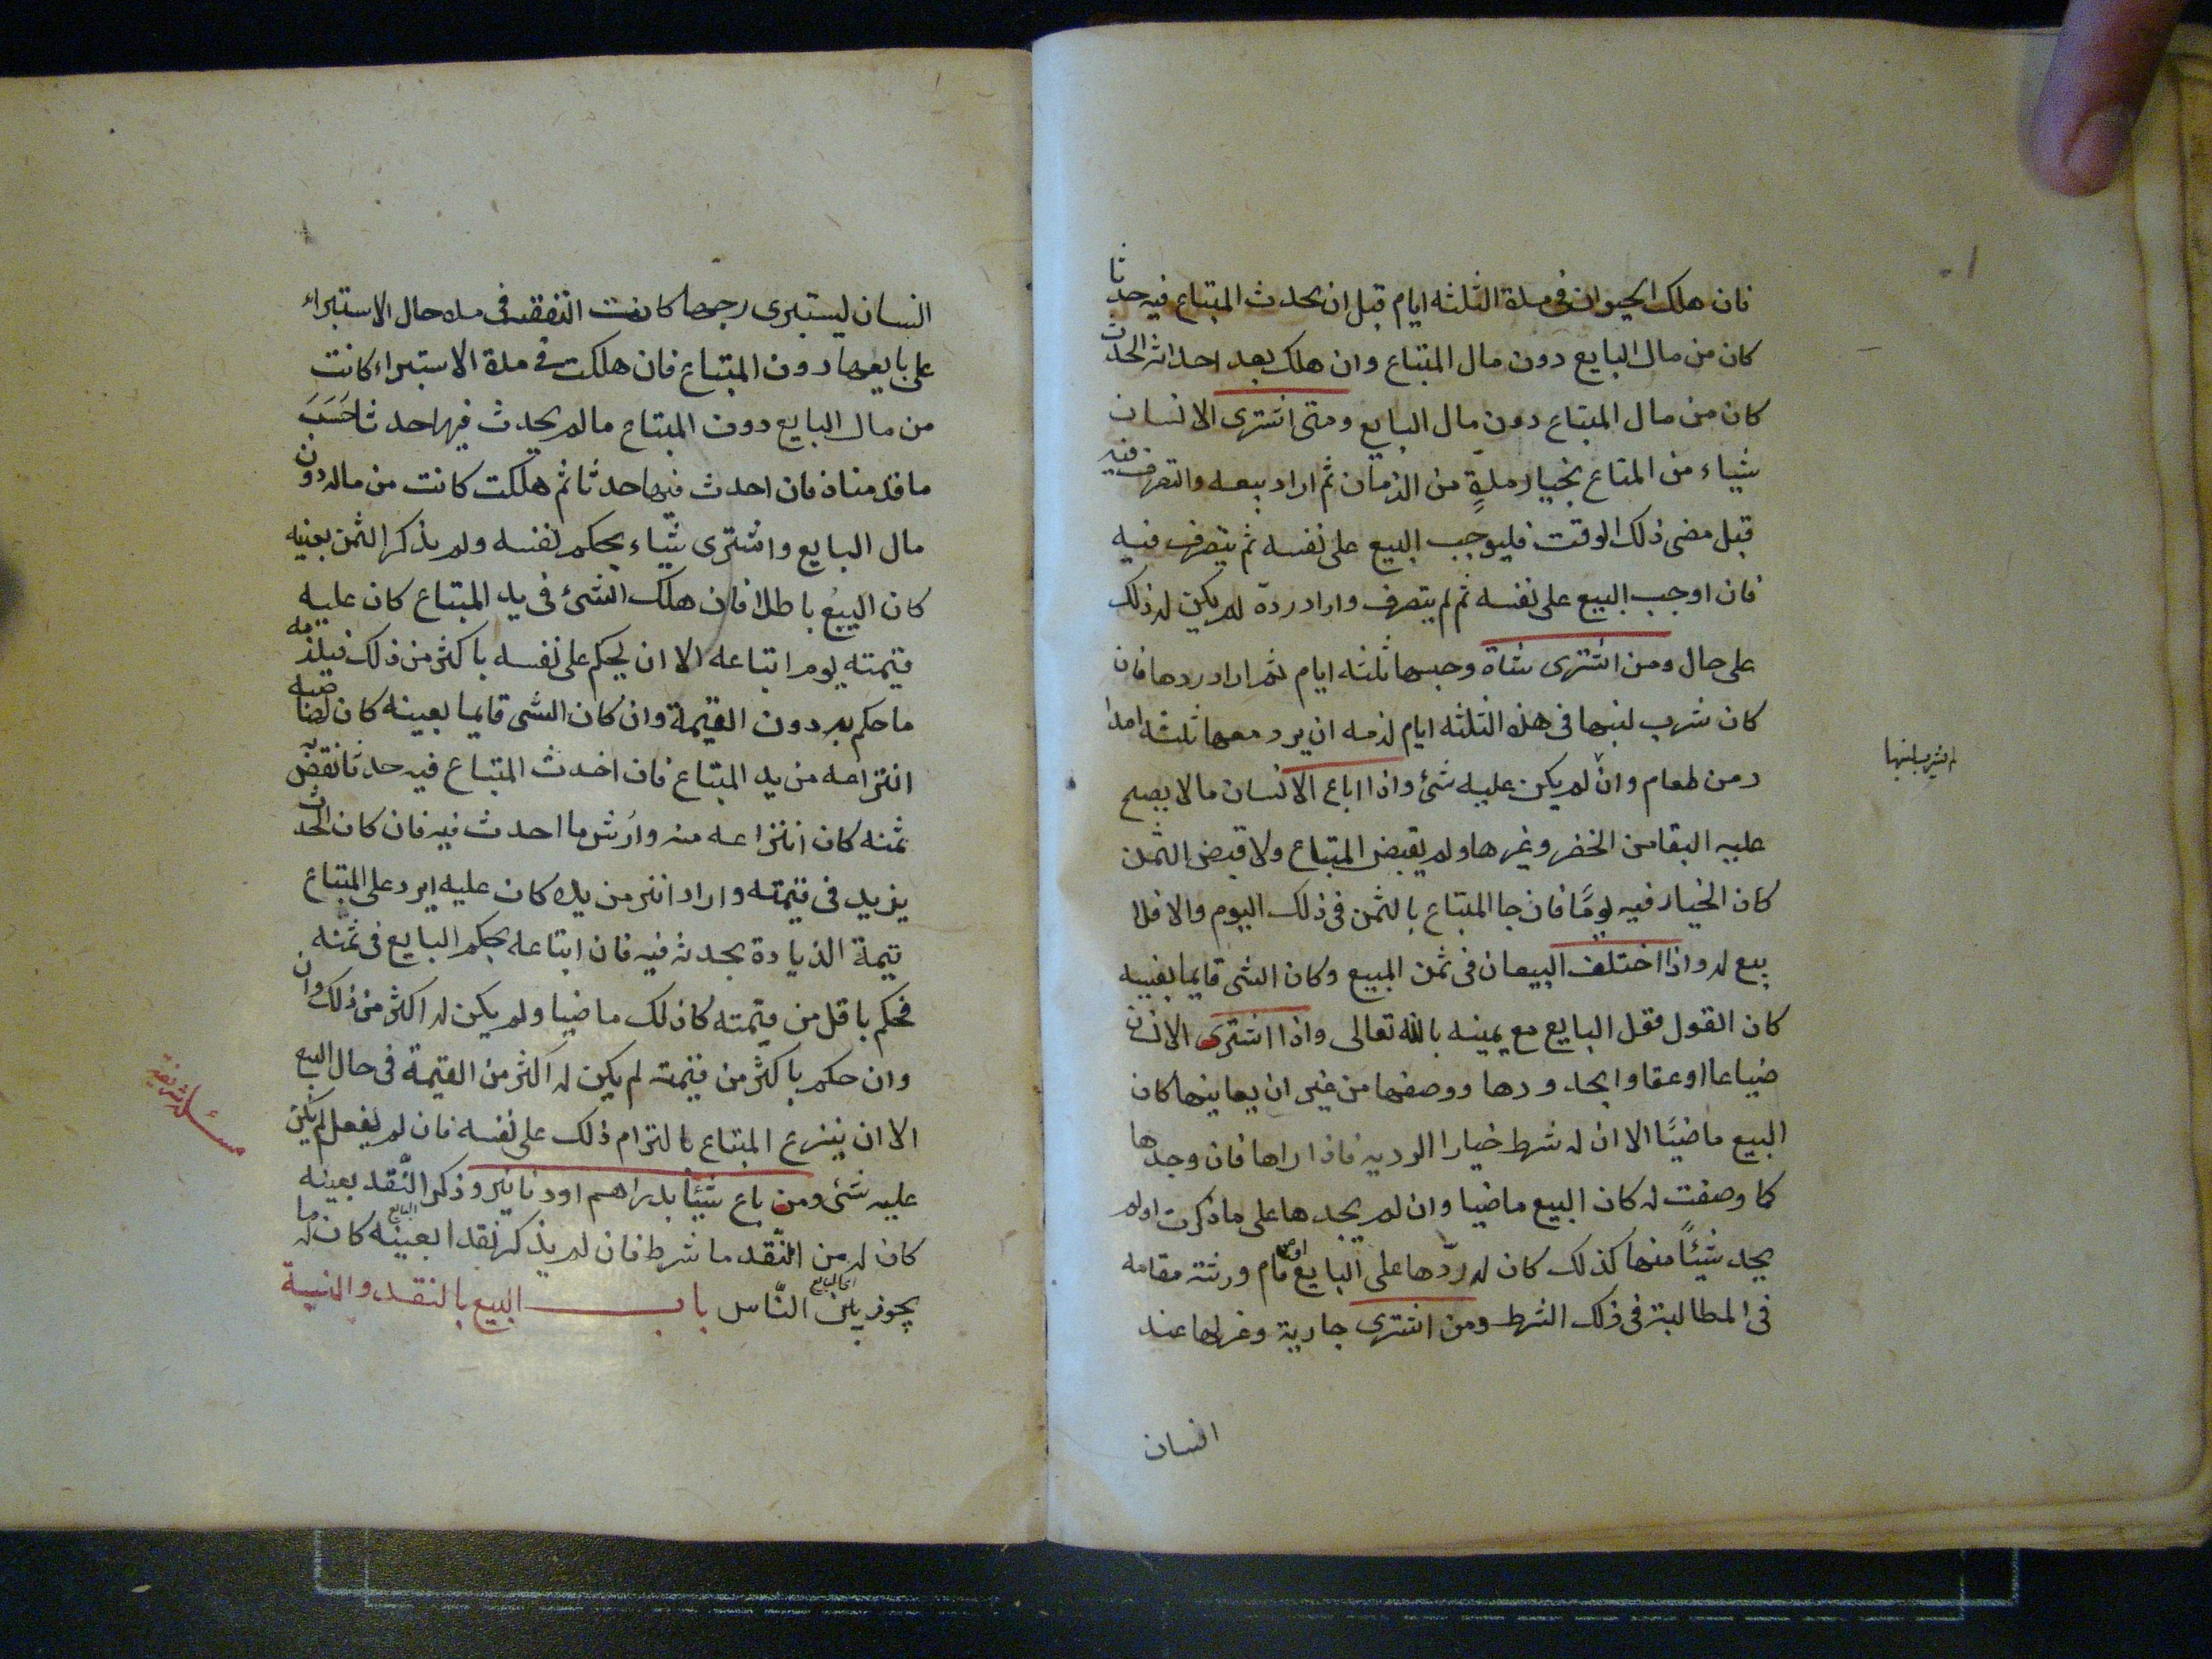 فان هلك الحيوان فى مدة الثلثه ايام قبل ان يحدث المبتاع فيه حدثا
كان من مال البايع دون مال المبتاع وان هلك بعد احداثه الحدث
كان من مال المبتاع دون مال البايع ومتى اشترى الانسان
شياء من المتاع بخيار مدةٍ من الزمان ثم اراد بيعه والتصرف فيه
قبل مضى ذلك الوقت فليوجب البيع على نفسه ثم يتصرف فيه
فان اوجب البيع على نفسه ثم لم يتصرف واراد ردّه لم يكن له ذلك
على حال ومن اشترى شاة وحبسها ثلثه ايام ثم اراد ردها فان
كان شرب لبنها فى هذه الثلثه ايام لزمه ان يرد معها ثلثه امدا
د من طعام وان لم يكن عليه شئ واذا اباع الانسان مالا يصح
عليه البقا من الخضر وغيرها ولم يقبض المبتاع ولا قبض الثمن
كان الخيار فيه يومًا فان جا المبتاع بالثمن فى ذلك اليوم والا فلا
بيع له واذا اختلف البيعان فى ثمن المبيع وكان الشى قايما بعينه
كان القول فقل البايع مع يمينه بالله تعالى واذا اشترى الانسان
ضياعا اوعقاوا بحدودها ووصفها من غير ان يعاينها كان
البيع ماضيًا الا ان له شرط خيارا الرديه فاذا راها فان وجدها
كما وصفت له كان البيع ماضيا وان لم يجدها على ما ذكرت او لم
يجد شيئًا منها كذلك كان له ردّها على البايع قام ورثته مقامه
فى المطالبة فى ذلك الشرط ومن اشترى جارية وعزلها عند
انسان
لم يشرب لبنها
النسان ليستبرى رحمها كانت النفقه فى مده حال الاستبراء
على بايعها دون المبتاع فان هلكت فى مدة الاستبراء كانت
من مال البايع دون المبتاع مالم يحدث فيها حدثا حَسَبَ
ما قدمناه فان احدث فيها حدثا ثم هلكت كانت من ماله دون
مال البايع واشترى شياء بحكم نفسه ولم يذكر الثمن بعينه
كان البيع باطلا فان هلك الشئ فى يد المبتاع كان عليه
قيمته يوم ابتاعه الا ان يحكم على نفسه باكثر من ذلك فيلزمه
ما حكم به دون القيمة وان كان الشى قايما بعينه كان لصاحبه
انتزاعه من يد المبتاع فان احدث المبتاع فيه حدثا نقص به
ثمنه كان انتزاعه منه وارش ما احدث فيه فان كان الحدث
يزيد فى قيمته واراد انتر من يده كان عليه ايرد على المبتاع
قيمة الزيادة بحدثه فيه فان ابتاعه بحكم البايع فى ثمنه
فحكم باقل من قيمته كان لك ماضيا ولم يكن له اكثر من ذلك وان
وان حكم باكثر من قيمته لم يكن له اكثر من القيمة فى حال البيع
الا ان ينزع المبتاع بالتزام ذلك على نفسه فان لم يفعل لم يكن
عليه شئ ومن باع شيئا بدراهم اودنانير وذكر النّقد بعينه
كان له من النّقد ما شرط فان لم يذكر نقدا بعينه كان له ما
يجوز بين النّاس باب البيع بالنقد والنسية